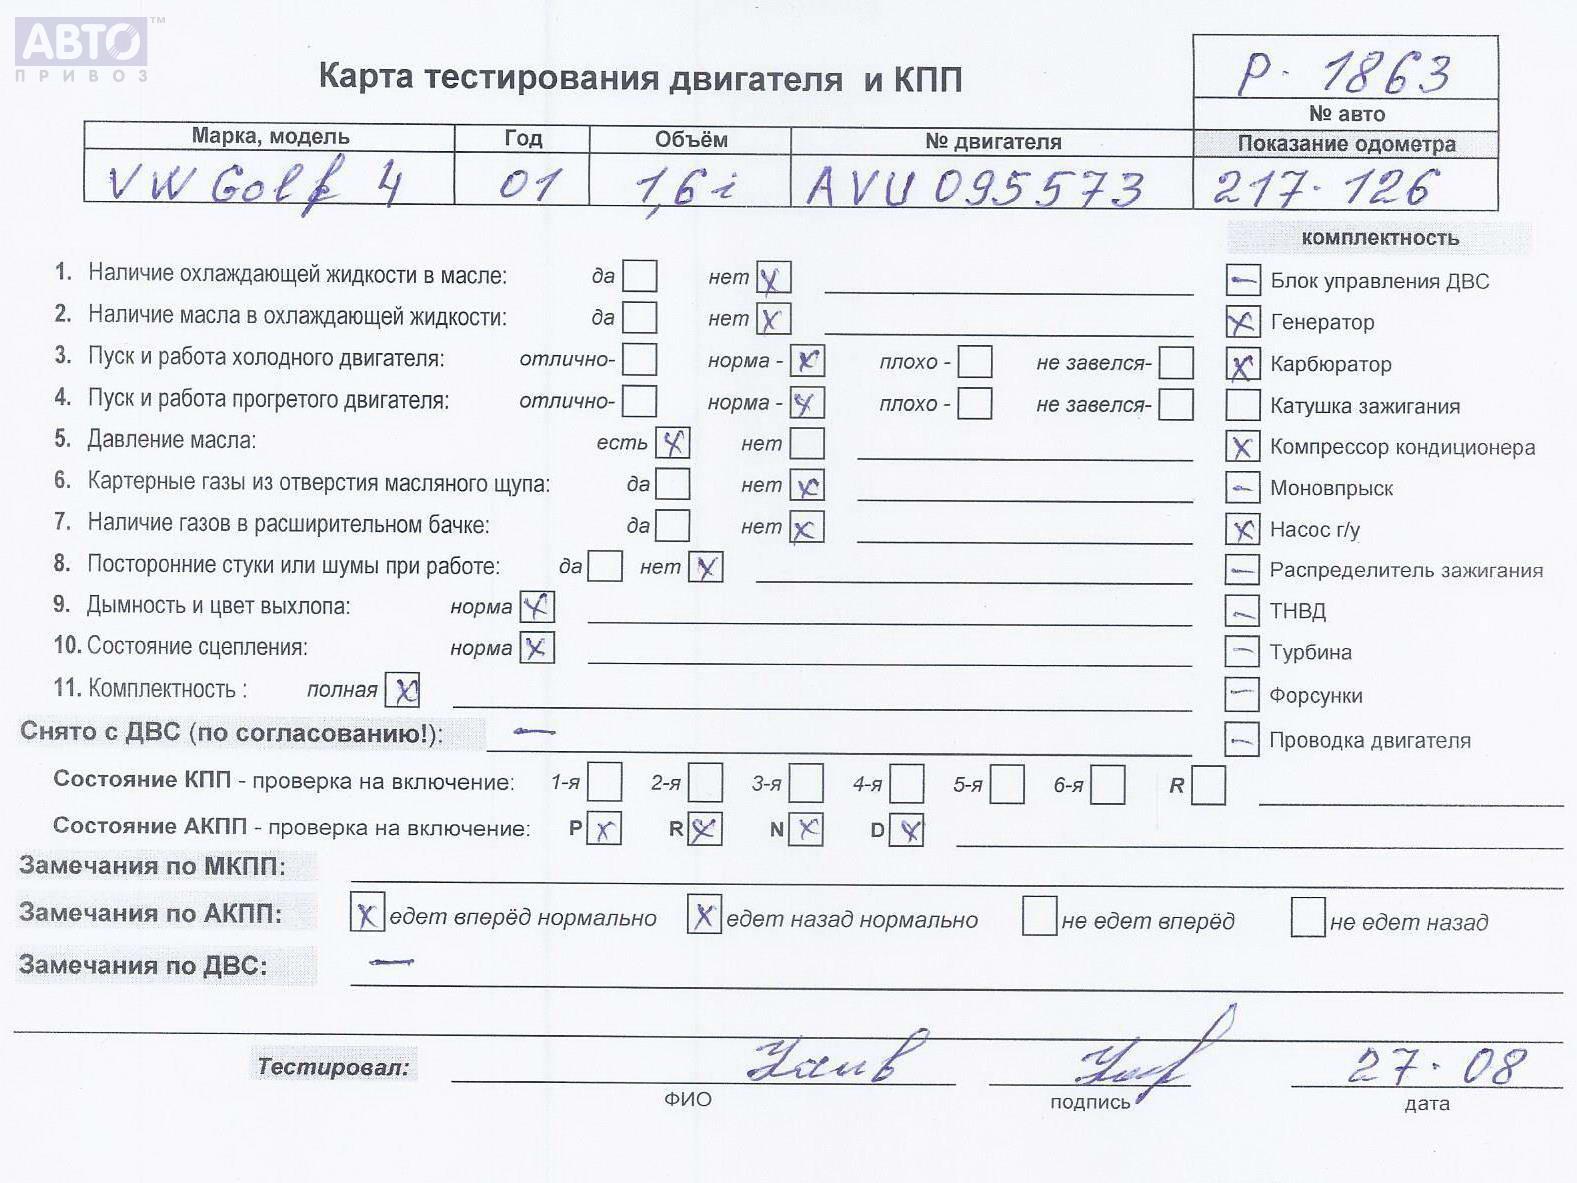 АВТО™
ПРИВОЗ
Карта тестирования двигателя и КПП
Р-1863
№ авто
Марка, модель Год Объём № двигателя Показание одометра
VW Golf 4 01 1,6i AVU 095573 217-126
комплектность
1. Наличие охлаждающей жидкости в масле: да нет x
2. Наличие масла в охлаждающей жидкости: да нет x
3. Пуск и работа холодного двигателя: отлично- норма - x плохо - не завелся-
4. Пуск и работа прогретого двигателя: отлично- норма - x плохо - не завелся-
5. Давление масла: есть x нет
6. Картерные газы из отверстия масляного щупа: да нет x
7. Наличие газов в расширительном бачке: да нет x
8. Посторонние стуки или шумы при работе: да нет x
9. Дымность и цвет выхлопа: норма x
10. Состояние сцепления: норма x
11. Комплектность : полная x
- Блок управления ДВС
x Генератор
x Карбюратор
Катушка зажигания
x Компрессор кондиционера
- Моновпрыск
x Насос г/у
- Распределитель зажигания
- ТНВД
- Турбина
- Форсунки
- Проводка двигателя
Снято с ДВС (по согласованию!): -
Состояние КПП - проверка на включение: 1-я 2-я 3-я 4-я 5-я 6-я R
Состояние АКПП - проверка на включение: P x R x N x D x
Замечания по МКПП:
Замечания по АКПП: x едет вперёд нормально x едет назад нормально не едет вперёд не едет назад
Замечания по ДВС: -
Тестировал: 27.08
ФИО подпись дата